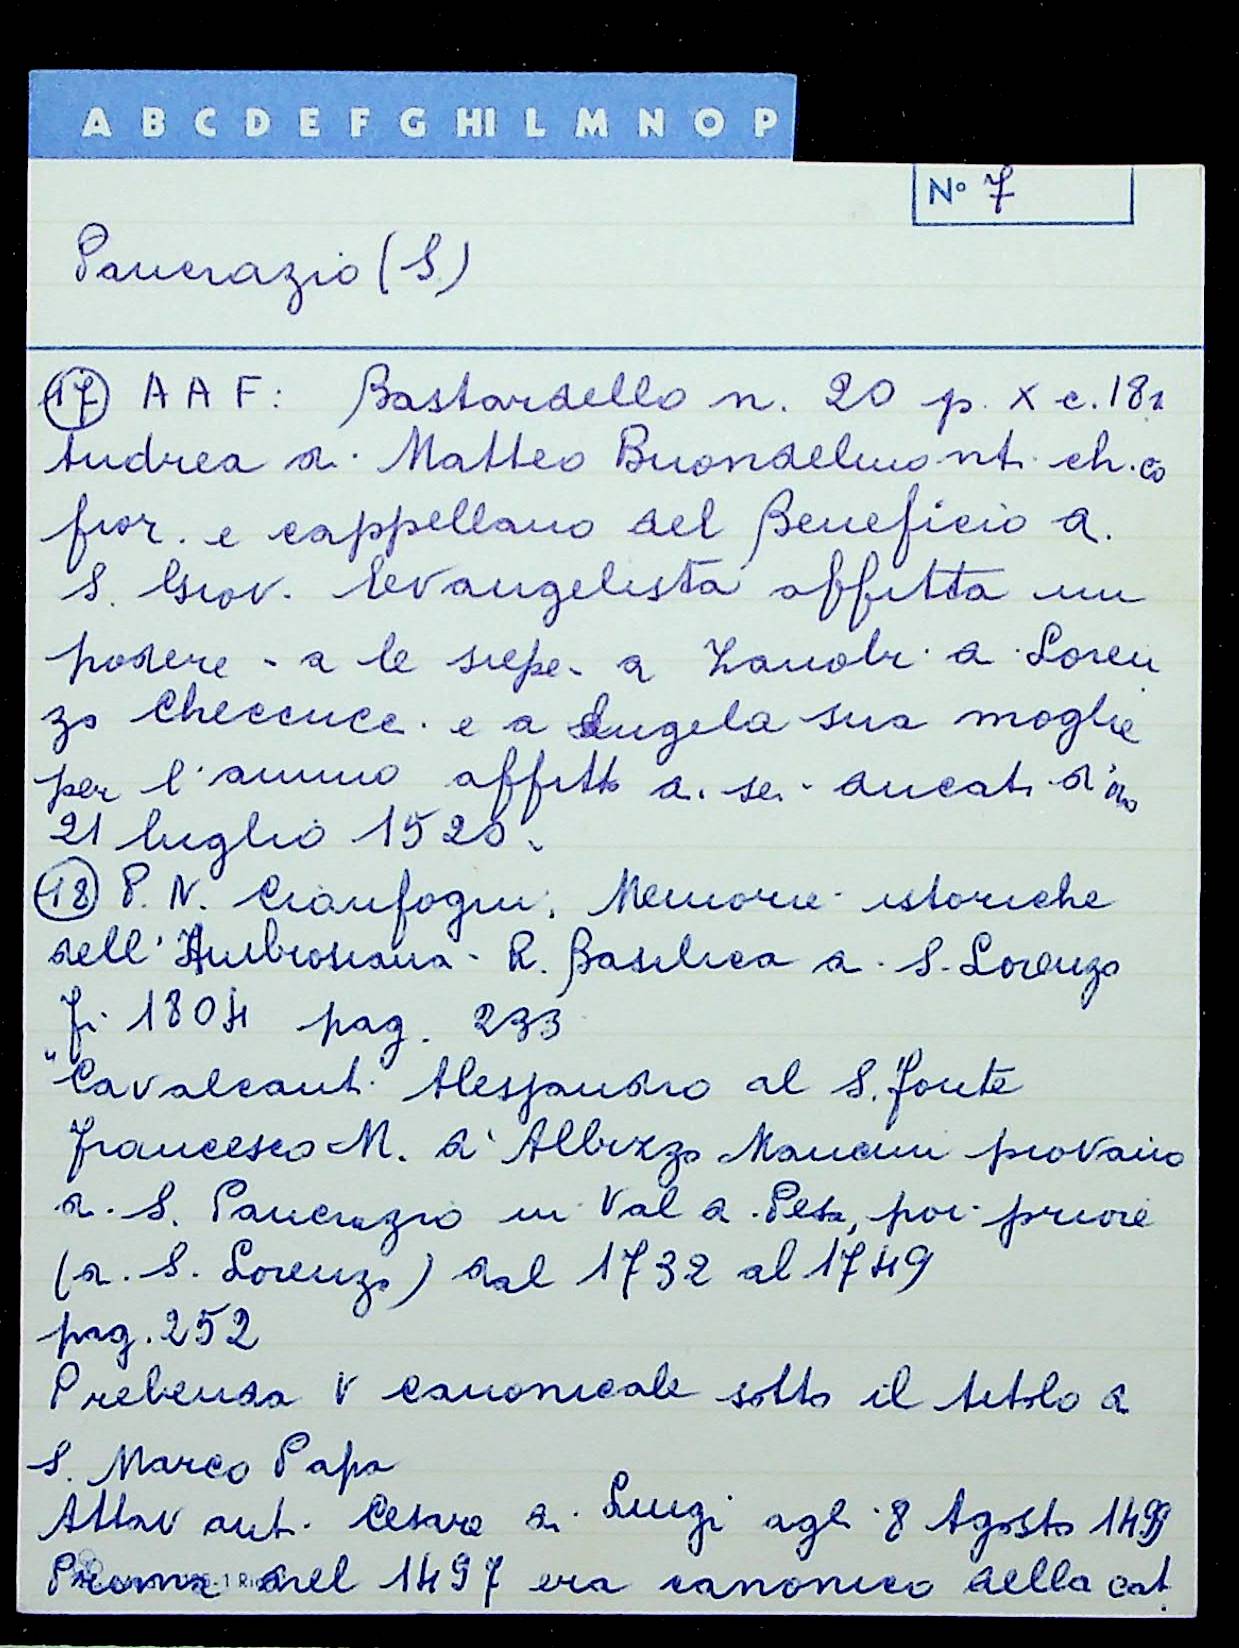 A B C D E F G HI L M N O P
N° 7
Pancrazio (S.)
17 A A F: Bastardello n. 20 p. X c. 182
Andrea di Matteo Buondelmonti ch.co
fior. e cappellano del Beneficio di
S. Giov. Evangelista affitta un
podere - a le siepe - a Zanobi di Loren
zo Checcucci e a Angela sua moglie
per l'annuo affitto di sei ducati d'oro
21 luglio 1520.
18 P. N. Cianfogni. Memorie istoriche
dell'Ambrosiana R. Basilica di S. Lorenzo
Fi 1804 pag. 233
"Cavalcanti Alessandro al S. Fonte
Francesco M. di Albizzo Mancini piovano
di S. Pancrazio in Val di Pesa, poi priore
(di S. Lorenzo) dal 1732 al 1749
pag. 252
Prebenda V canonicale sotto il titolo di
S. Marco Papa
Attavanti Cesare di Luigi agli 8 Agosto 1499
Prima nel 1497 era canonico della cat.